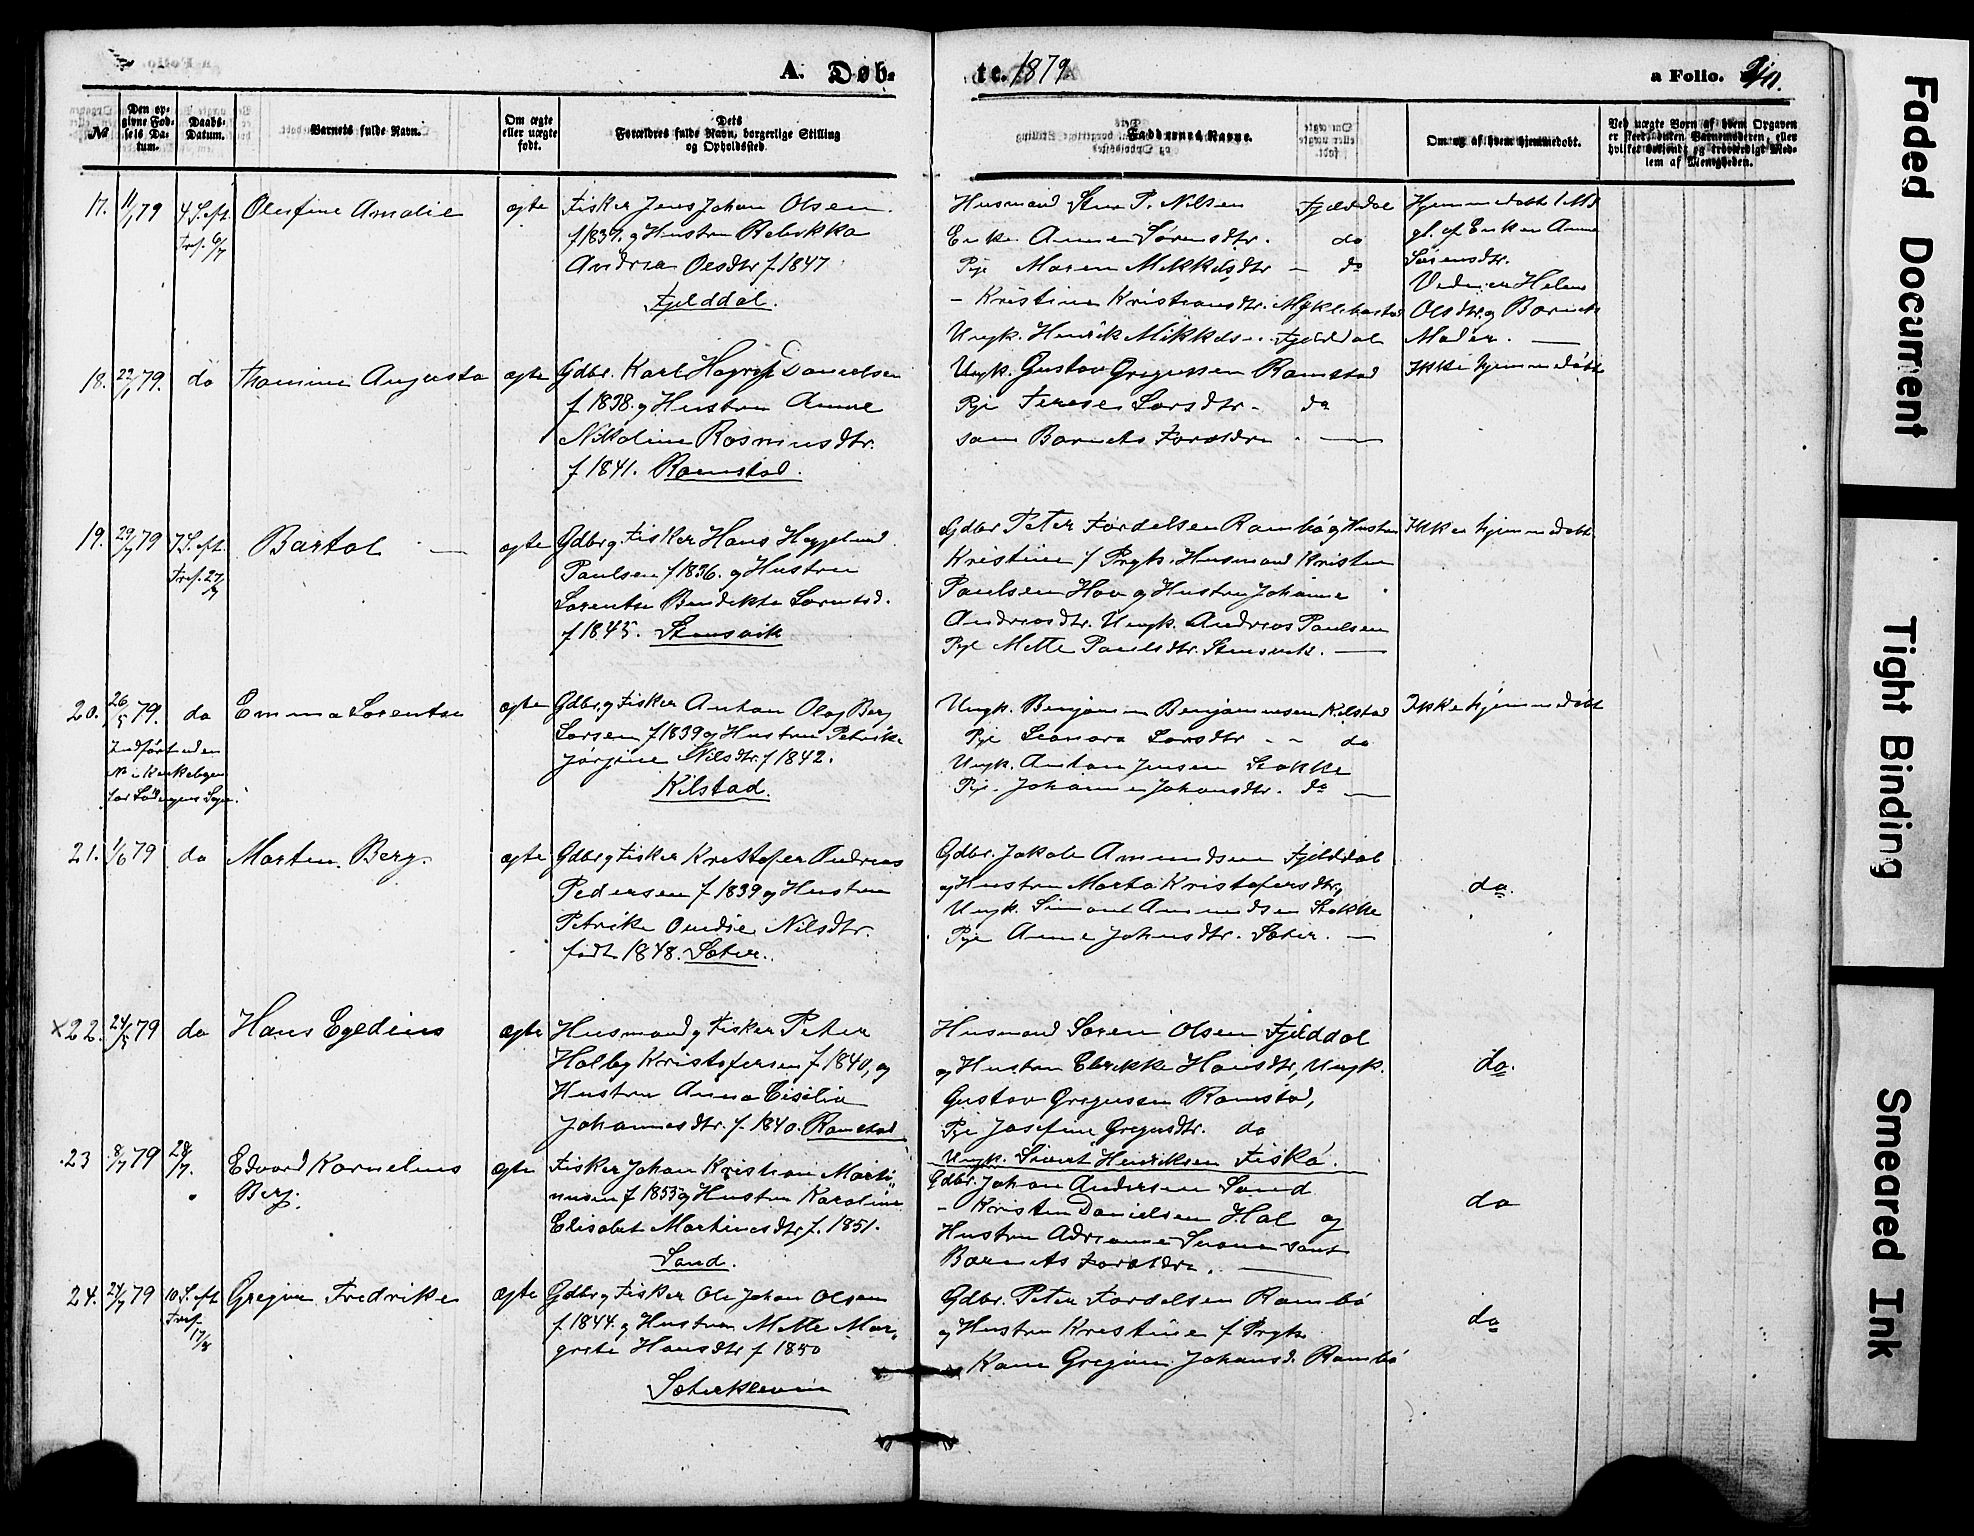 A. Døb-
te. 1879
a Folio.
№
Den op-
givne Fød-
sels Da-
tum.
Daabs-
Datum.
Barnets fulde Navn.
Om ægte
eller uægte
født.
Dets
Forældres fulde Navn, borgerlige Stilling
og Opholdssted.
Faddernes Navne.
Om og af hvem hjemmedøbt.
Ved uægte Børn af hvem Opgaven
er sket, enten Barnemoderen, eller
hvilket bekjendt og troværdigt Med-
lem af Menigheden.
17. 11/1 79
4 S. eft.
Tref. 6/7
Olufine Amalie
ægte
Fisker Jens Johan Olsen
f 1837. og Hustru Rebekka
Andrea Olsdtr f. 1847
Fjelddal.
Husmand Sten P. Nilsen Fjelddal
Enke Anne Sørensdtr. do
Pige Maren Mikkelsdtr - do
- Kristine Kristiansdtr. Myklebostad
Ungk. Henrik Mikkelsen Fjelddal
Hjemmedøbt
gl. af Enken Anne
Sørensdtr.
Vidner Helene
Olsdtr. og Barnets
Moder.
18. 22/1 79.
do
Thomine Augusta
ægte
Gdbr. Karl Danielsen
f 1838. og Hustru Anne
Nikoline Rasmusdtr.
f 1841. Ramstad.
Ungk. Gustav Gregussen Ramstad
Pige Terese Larsdtr. do
samt Barnets Forældre.
Ikke hjemmedøbt
19. 29/7 79
7 S. eft.
Tref. 27/7
Bartol
ægte
Gdbr og Fisker Hans Heggelund
Paulsen f 1836. og Hustru
Lorentse Bendikte Lorentsd.
f 1845. Stensvik
Gdbr Peter Tordelsen Rambø og Hustru
Kristine f Prytz. Husmand Kristen
Paulsen Hov og Hustru Johanne
Andreasdtr. Ungk. Andreas Paulsen
Pige Mette Paulsdtr. Stensvik.
Ikke hjemmedøbt
20. 26/5 79.
do
Emma Lorentse
Indført uden
№ i Kirkebogen
for Sogn.
ægte
Gdbr. og Fisker Anton Olaj Berg
Larsen f 1839 og Hustru Petrikke
Jørgine Nilsdtr. f 1842.
Kilstad.
Ungk. Benjamin Benjaminsen Kilstad
Pige Leonora Larsdtr - - do
Ungk. Anton Jensen Stokke
Pige. Johanne Johansdtr. do
Ikke hjemmedøbt
21. 1/6 79
do
Morten Berg.
ægte
Gdbr og Fisker Kristofer Andreas
Pedersen f 1839 og Hustru
Petrikke Nilsdtr.
født 1848. Sæter.
Gdbr. Jakob Amundsen Fjelddal
og Hustru Marta Kristofersdtr,
Ungk. Simon Amundsen Stokke
Pige Anne Johnsdtr. Sæter.
do.
x22. 24/5 79
do
Hans Egedius
ægte
Husmand og Fisker Peter
Holby Kristofersen f 1840, og
Hustru Anna Cisilia
Johannesdtr. f. 1840. Ramstad
Husmand Søren Olsen Fjelddal
og Hustru Elrikke Hansdtr, Ungk.
Gustav Gregussen Ramstad,
Pige Josefine Gregusdtr. do
Ungk. Sivert Henriksen Fiskø.
do.
23 8/7 79
28/7.
Edvard Kornelius
Berg.
ægte
Fisker Johan Kristian Marti-
nusen f 1855 og Hustru Karoline
Elisabet Martinusdtr f. 1851.
Sand.
Gdbr. Johan Andersen Sand
- Kristen Danielsen Hol og
Hustru Adrianne samt
Barnets Forældre.
do
24. 24/7 79
10 S. eft.
Tref.
17/8
Gregine Fredrikke
ægte
Gdbr og Fisker Ole Johan Olsen
f 1844. og Hustru Mette Mar-
grete Hansdtr f 1850
Sæterkleven
Gdbr. Peter Tordelsen Rambø
og Hustru Kristine f Prytz
Kone Gregine Johansd. Rambø
do
Faded Document
Tight Binding
Smeared Ink